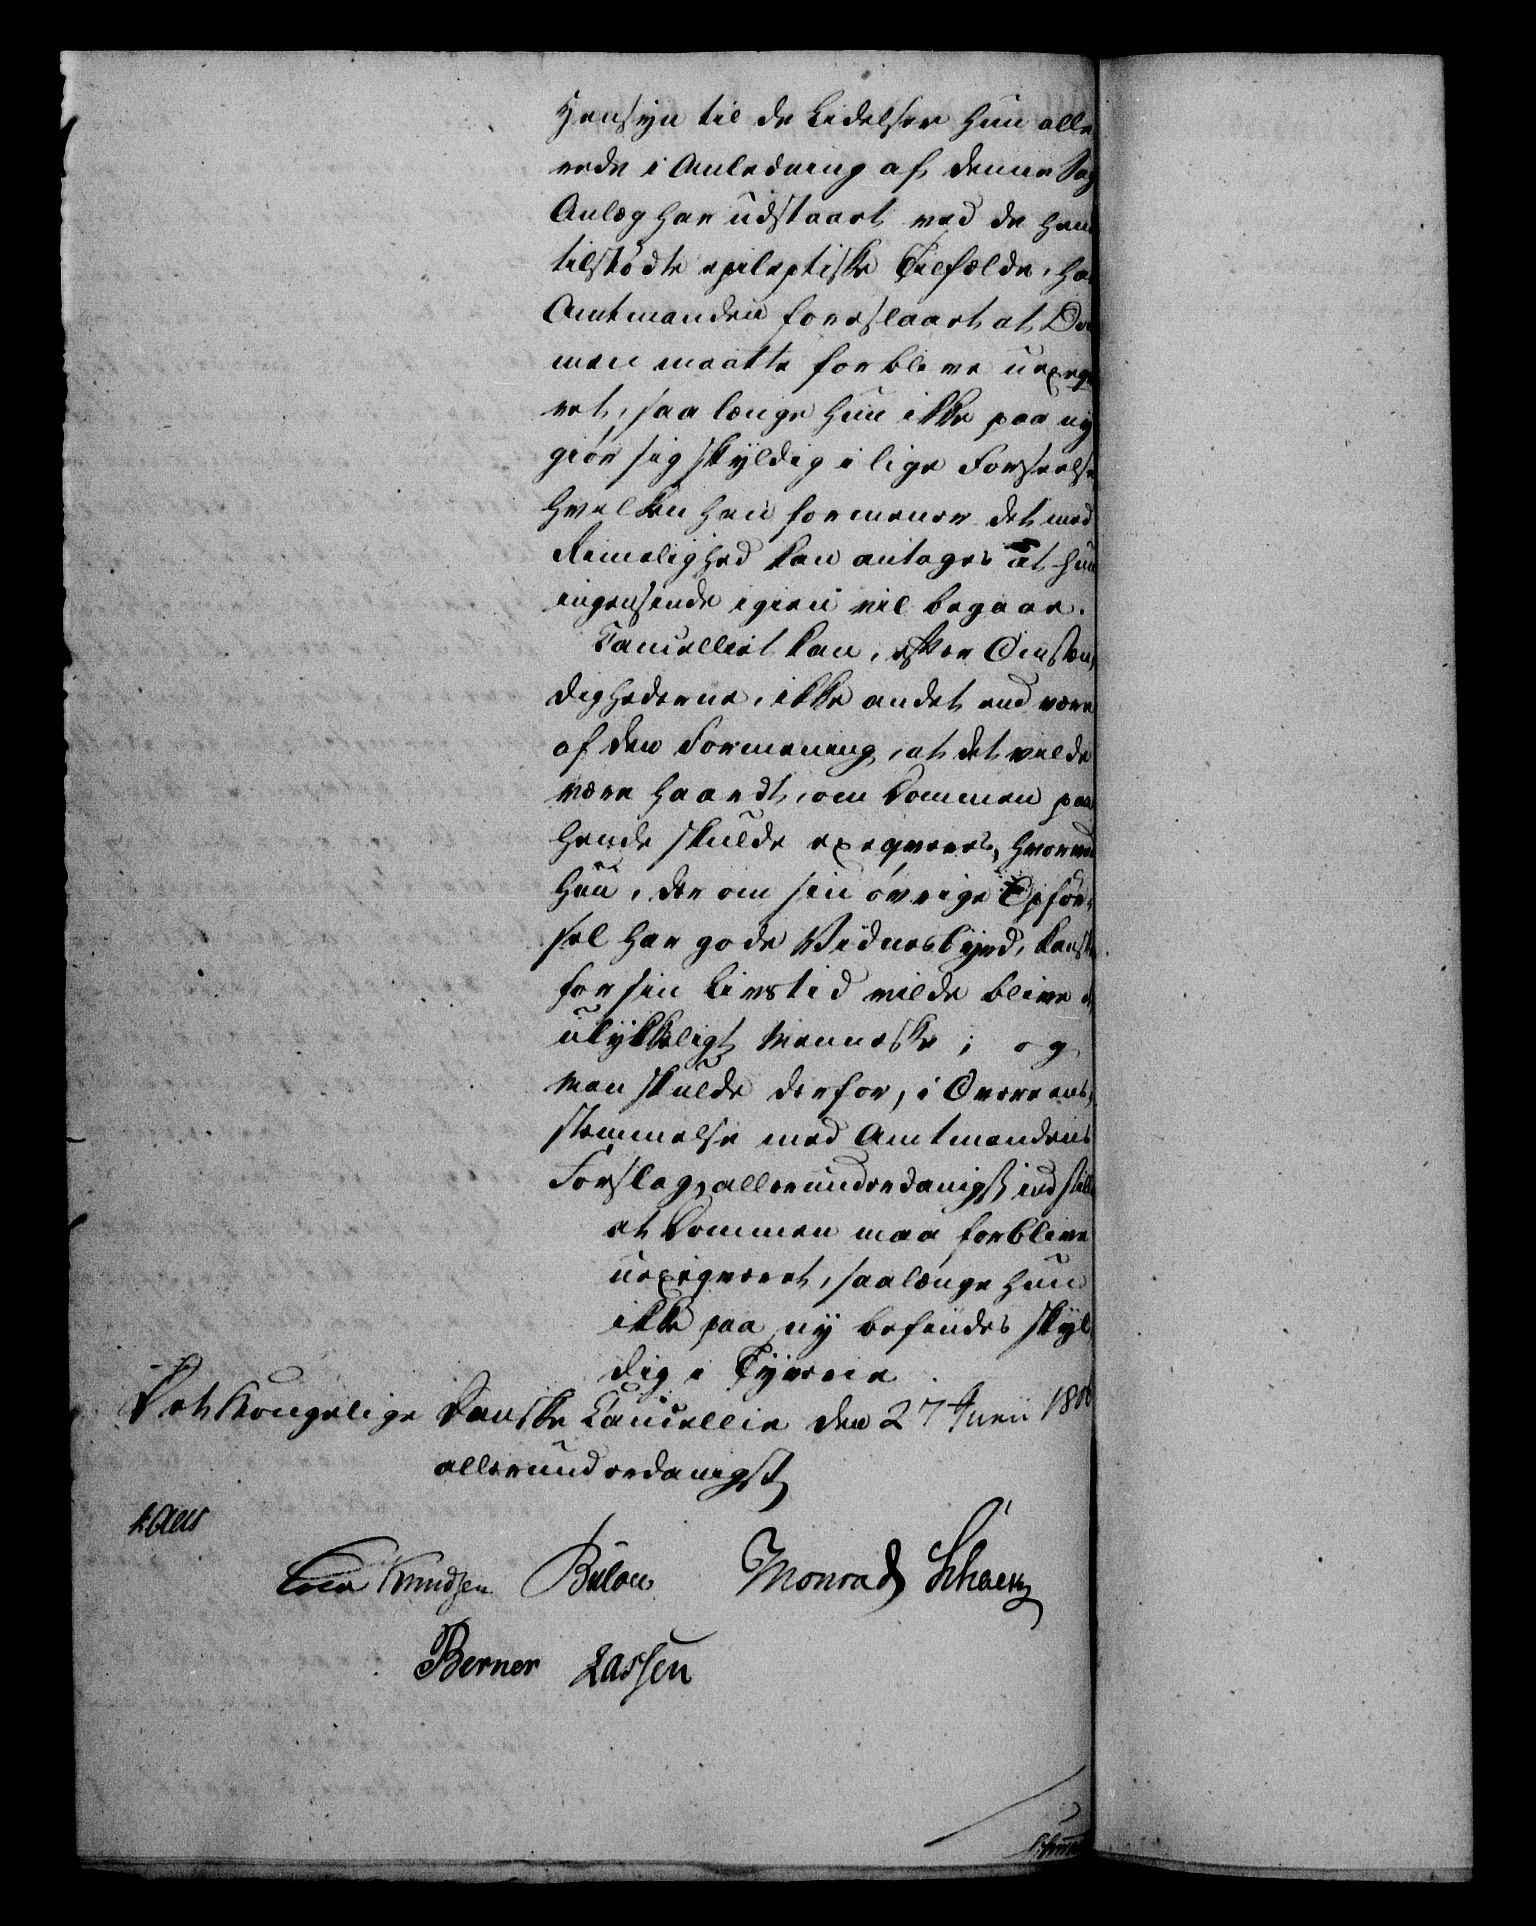 Hensyn til de Lidelser hun alle
rede i Anledning af denne Sag
Anlæg har udstaaet ved de hende
tilstødte epileptiske Tilfælde, har
Amtmanden foreslaaet at Dom
men maatte forblive uexeqve
ret, saa længe hun ikke paa ny
giør sig skyldig i lige Forseelse
hvilken han formener det med
Rimelighed kan antages at hun
ingensinde igien vil begaae.
Cancelliet kan, efter Omstæn,
dighederne, ikke andet end være
af den Formening, at det vilde
være haardt, om Dommen paa
hende skulde exeqveres, hvorved
hun, der om sin øvrige Opfør,
sel har gode Vidnesbyrd, kanske
for sin Livstid vilde blive et
ulykkeligt Menneske; og
man skulde derfor, i Overeens,
stemmelse med Amtmandens
Forslag, allerunderdanigst indstille
at Dommen maa forblive
uexeqveret, saalænge hun
ikke paa ny befindes skyl,
dig i Tyverie.
Det Kongelige Danske Cancellie den 27 Junii 180
allerunderdanigst
Kaas
Cold Knudsen Bülow Monrad Schack
Berner Lassen